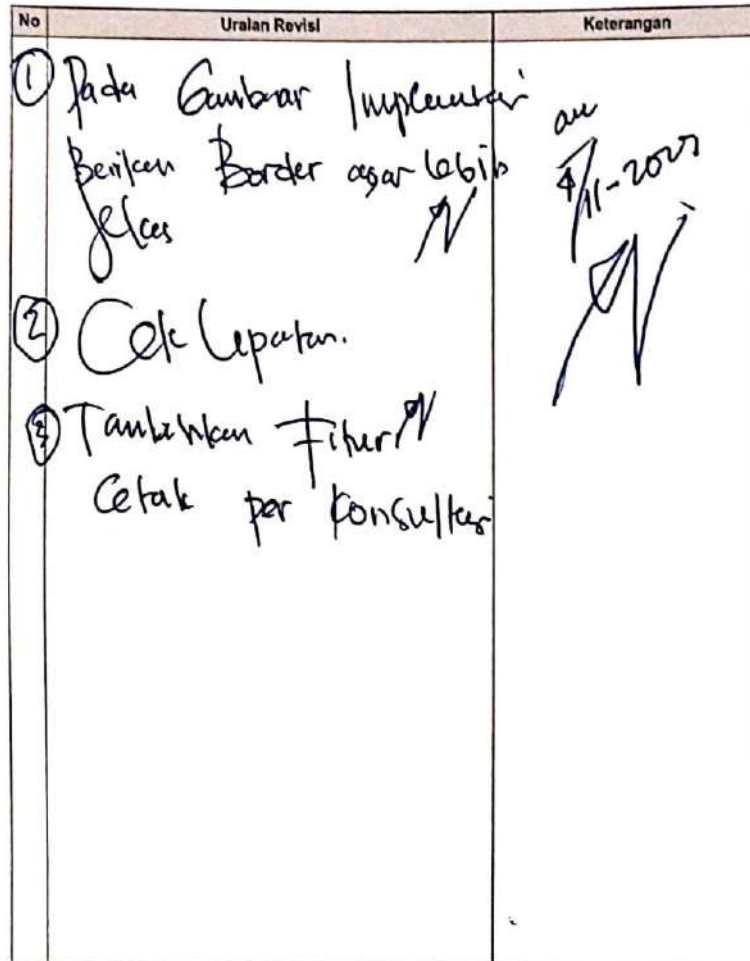 No Uraian Revisi Keterangan
1 Pada Gambar Implementasi
Berikan Border agar lebih
jelas
2 Cek
3 Tambahkan Fitur
Cetak per Konsultasi